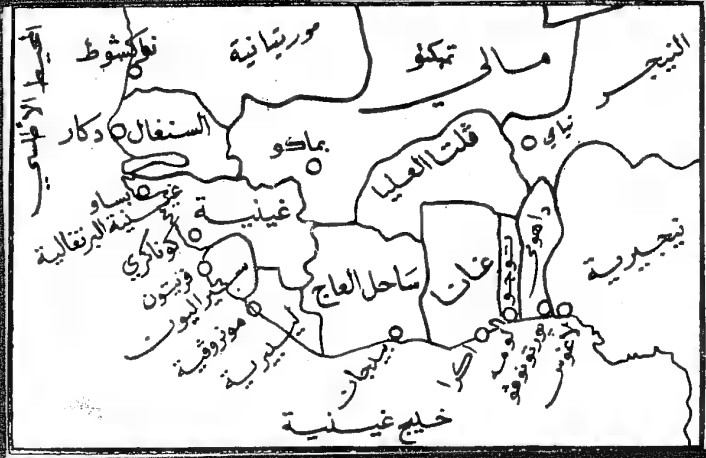 المحيط الأطلسي
نواكشوط
موريتانية
تمبكتو
مالي
النيجر
دكار
السنغال
بماكو
ڤلتا العليا
نيامي
بساو
غينية البرتغالية
غينية
كوناكري
فريتون
سيراليون
مونروڤية
ليبيرية
ساحل العاج
بيدجان
غانا
اكرا
توجو
لومه
داهومي
بورتونوڤو
لاغوس
نيجيرية
خليج غينية